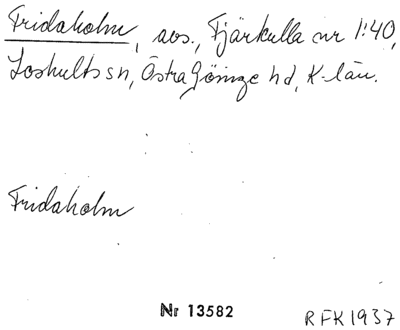 Fridaholm, avs., Fjärkulla nr 1:40,
Loshults sn, Östra Göinge hd, K-län.
Fridaholm
Nr 13582
RFK 1937